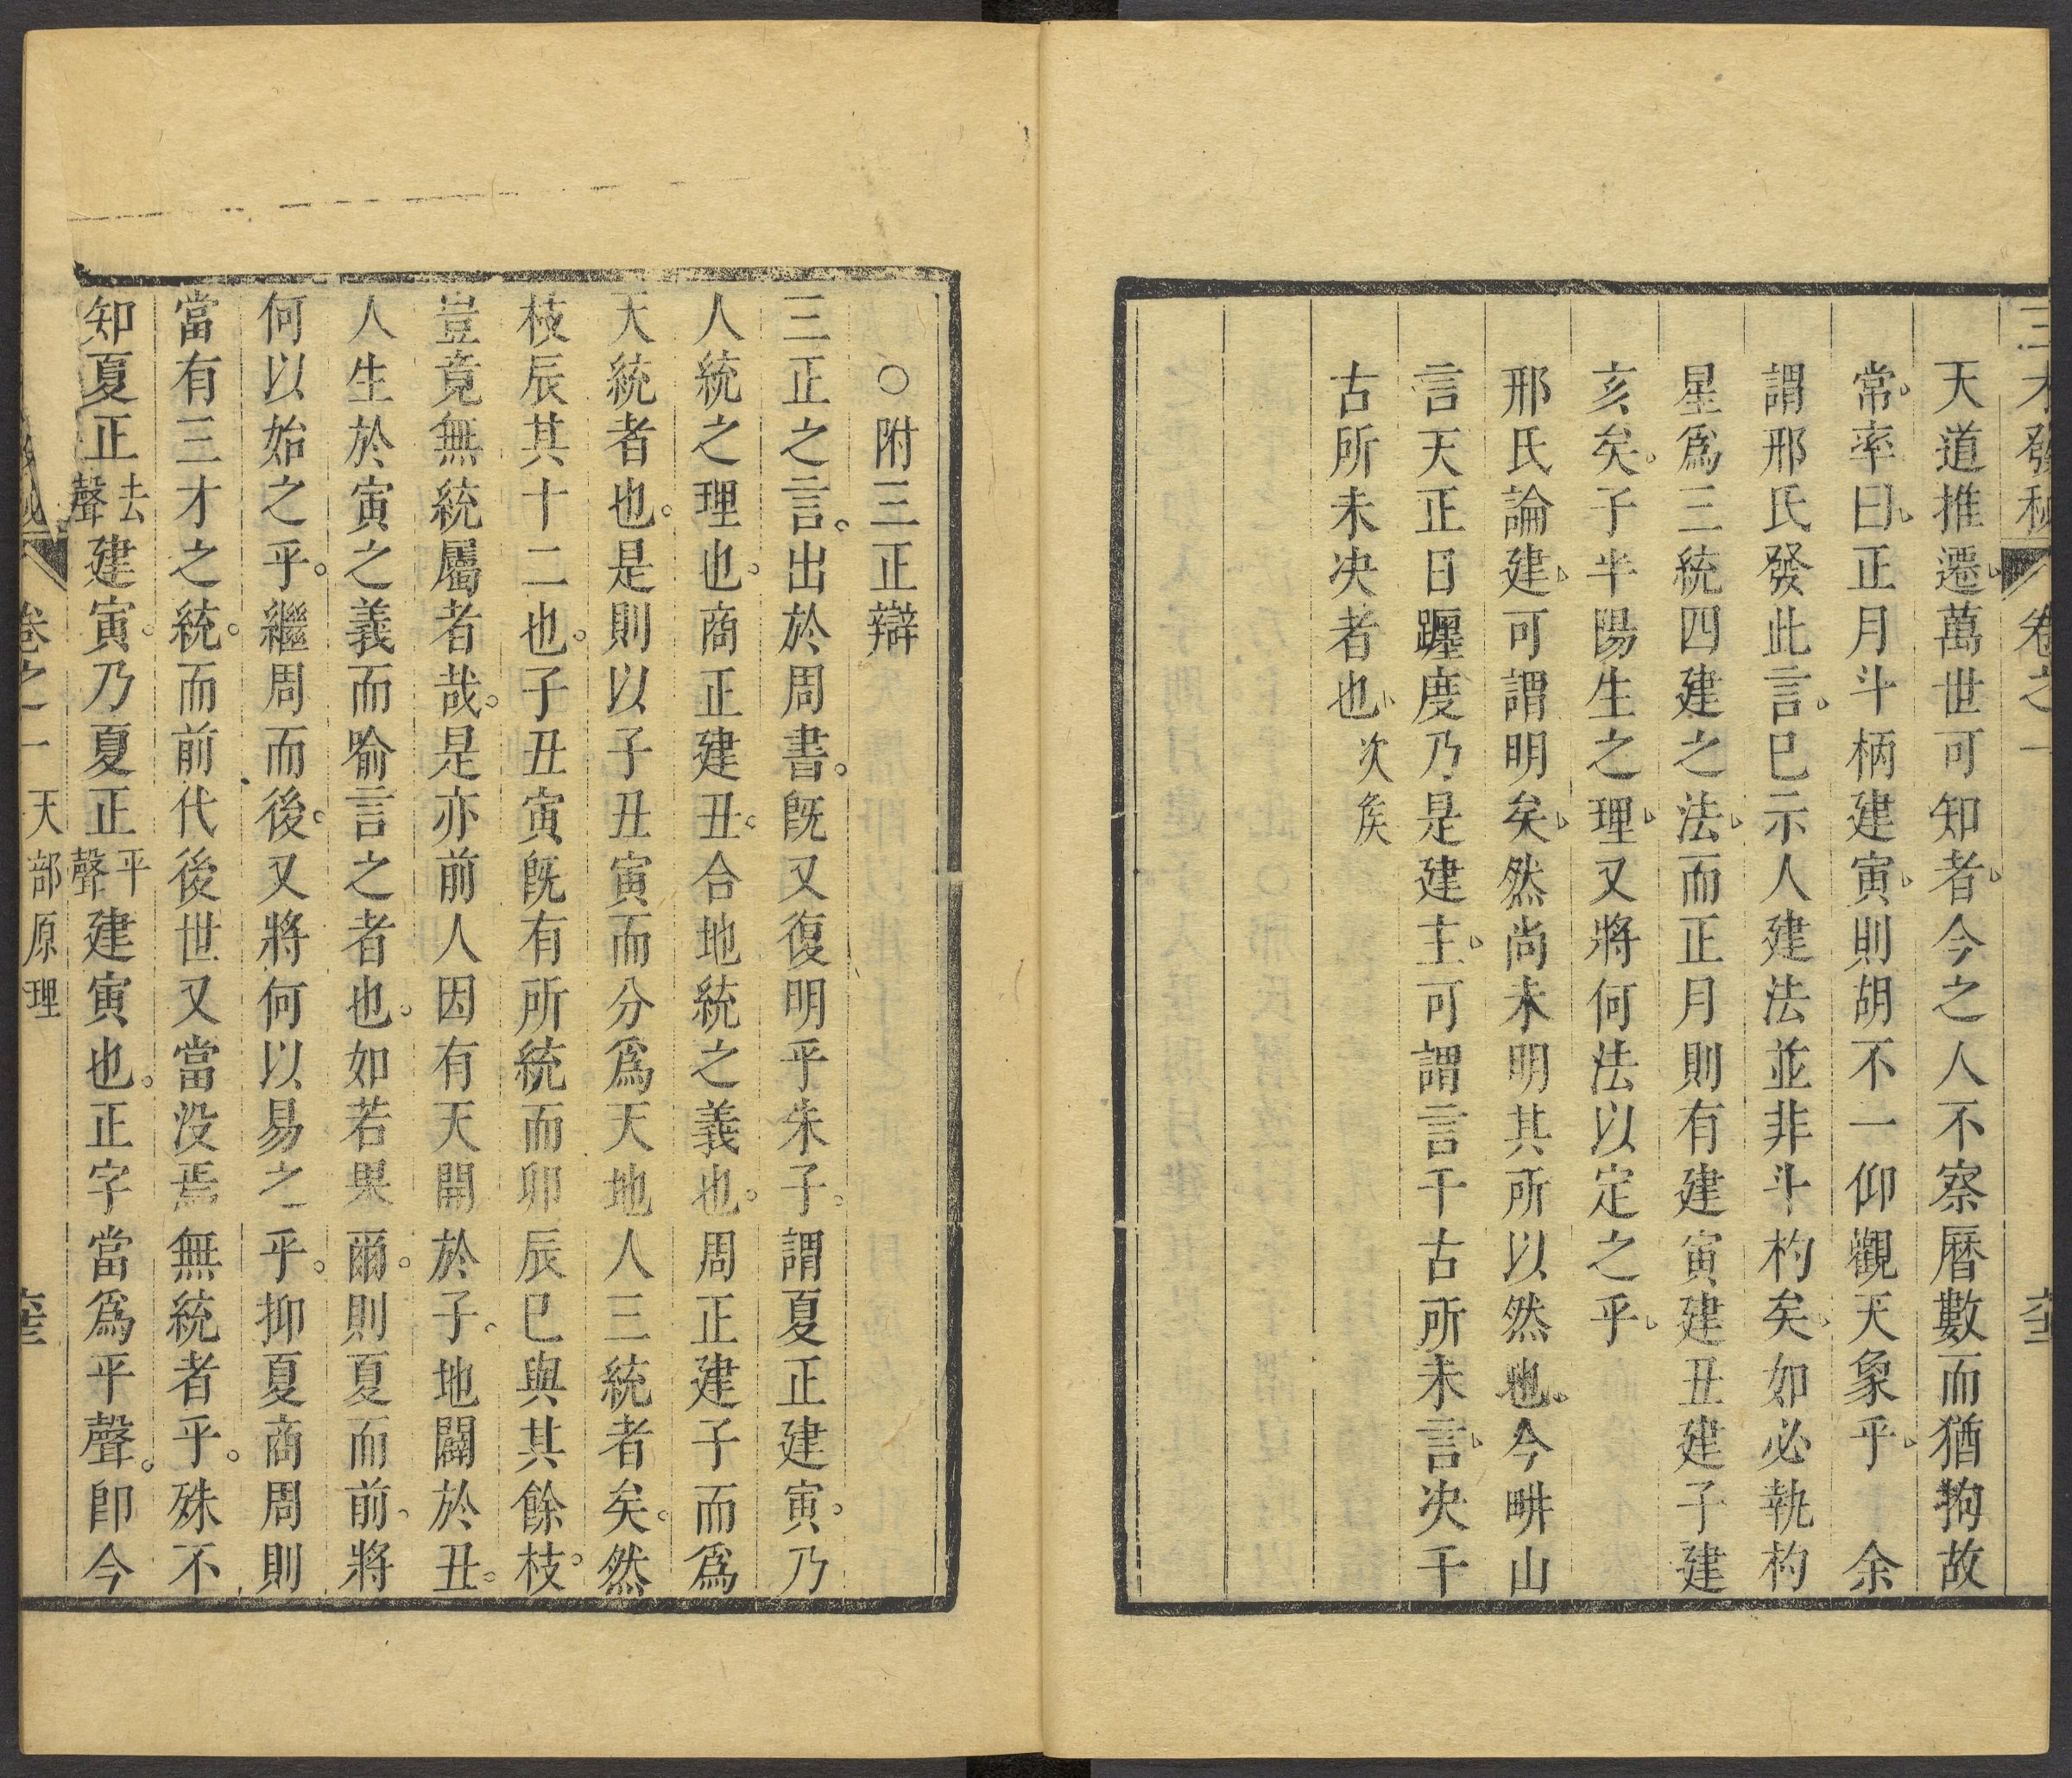 三才發秘 卷之一
天道推遷萬世可知者今之人不察曆數而猶拘故
常率曰正月斗柄建寅則胡不一仰觀天象乎 余
謂邢氏發此言已示人建法並非斗杓矣如必執杓
星爲三統四建之法而正月則有建寅建丑建子建
亥矣子半陽生之理又將何法以定之乎
邢氏論建可謂明矣然尚未明其所以然也今畊山
言天正日躔度乃是建主可謂言千古所未言决千
古所未决者也 次矦
○附三正辯
三正之言出於周書旣又復明乎朱子謂夏正建寅乃
人統之理也商正建丑合地統之義也周正建子而爲
天統者也是則以子丑寅而分爲天地人三統者矣然
枝辰其十二也子丑寅旣有所統而卯辰巳與其餘枝
豈竟無統屬者哉是亦前人因有天開於子地闢於丑
人生於寅之義而喻言之者也如若果爾則夏而前將
何以始之乎繼周而後又將何以易之乎抑夏商周則
當有三才之統而前代後世又當没焉無統者乎殊不
知夏正去聲建寅乃夏正平聲建寅也正字當爲平聲卽今
卷之一 天部原理